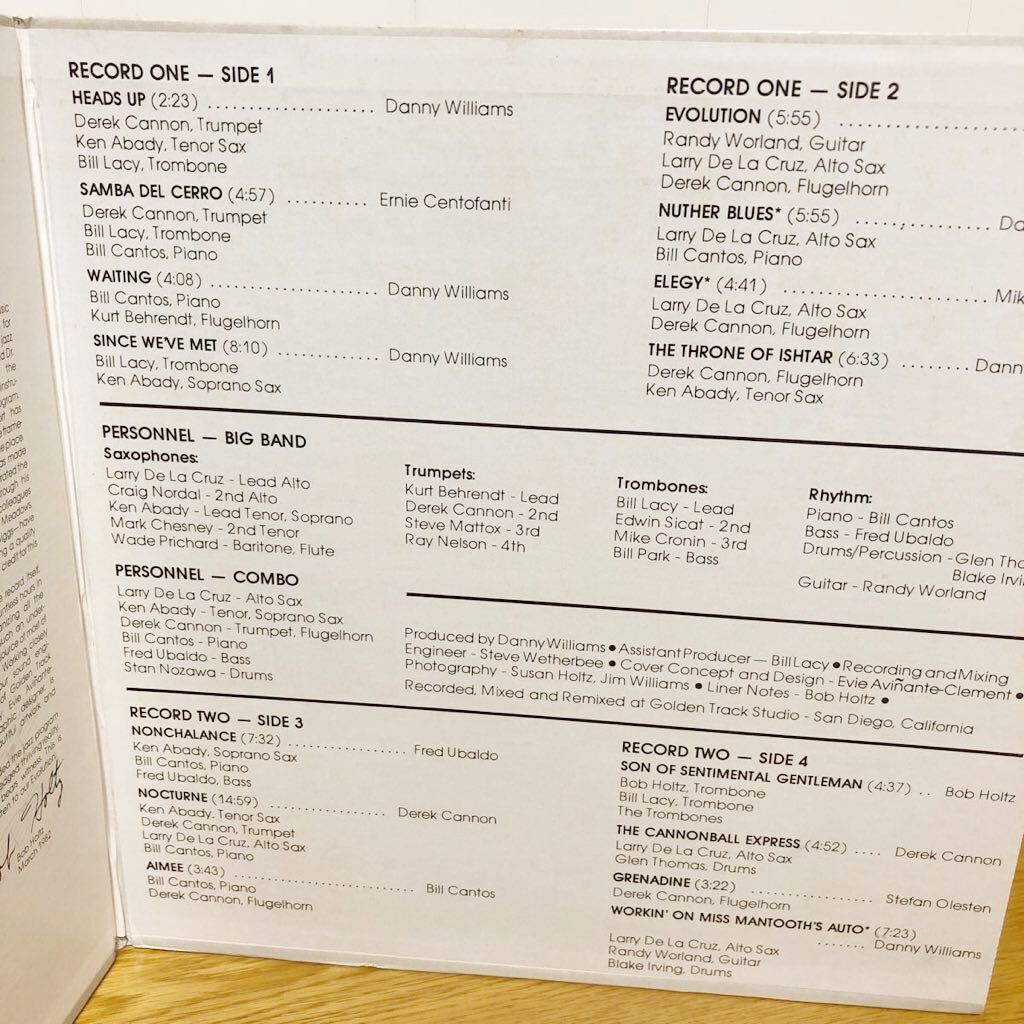 RECORD ONE — SIDE 1
HEADS UP (2:23) .................... Danny Williams
Derek Cannon, Trumpet
Ken Abady, Tenor Sax
Bill Lacy, Trombone
SAMBA DEL CERRO (4:57) .......... Ernie Centofanti
Derek Cannon, Trumpet
Bill Lacy, Trombone
Bill Cantos, Piano
WAITING (4:08) .................... Danny Williams
Bill Cantos, Piano
Kurt Behrendt, Flugelhorn
SINCE WE'VE MET (8:10) ............ Danny Williams
Bill Lacy, Trombone
Ken Abady, Soprano Sax
RECORD ONE — SIDE 2
EVOLUTION (5:55) ....................
Randy Worland, Guitar
Larry De La Cruz, Alto Sax
Derek Cannon, Flugelhorn
NUTHER BLUES* (5:55) ................ Da
Larry De La Cruz, Alto Sax
Bill Cantos, Piano
ELEGY* (4:41) ........................ Mik
Larry De La Cruz, Alto Sax
Derek Cannon, Flugelhorn
THE THRONE OF ISHTAR (6:33) ........ Dann
Derek Cannon, Flugelhorn
Ken Abady, Tenor Sax
PERSONNEL — BIG BAND
Saxophones:
Larry De La Cruz - Lead Alto
Craig Nordal - 2nd Alto
Ken Abady - Lead Tenor, Soprano
Mark Chesney - 2nd Tenor
Wade Prichard - Baritone, Flute
Trumpets:
Kurt Behrendt - Lead
Derek Cannon - 2nd
Steve Mattox - 3rd
Ray Nelson - 4th
Trombones:
Bill Lacy - Lead
Edwin Sicat - 2nd
Mike Cronin - 3rd
Bill Park - Bass
Rhythm:
Piano - Bill Cantos
Bass - Fred Ubaldo
Drums/Percussion - Glen Tho
Blake Irvi
Guitar - Randy Worland
PERSONNEL — COMBO
Larry De La Cruz - Alto Sax
Ken Abady - Tenor, Soprano Sax
Derek Cannon - Trumpet, Flugelhorn
Bill Cantos - Piano
Fred Ubaldo - Bass
Stan Nozawa - Drums
Produced by Danny Williams • Assistant Producer — Bill Lacy • Recording and Mixing
Engineer - Steve Wetherbee • Cover Concept and Design - Evie Aviñante-Clement •
Photography - Susan Holtz, Jim Williams • Liner Notes - Bob Holtz •
Recorded, Mixed and Remixed at Golden Track Studio - San Diego, California
RECORD TWO — SIDE 3
NONCHALANCE (7:32) .................. Fred Ubaldo
Ken Abady, Soprano Sax
Bill Cantos, Piano
Fred Ubaldo, Bass
NOCTURNE (14:59) .................... Derek Cannon
Ken Abady, Tenor Sax
Derek Cannon, Trumpet
Larry De La Cruz, Alto Sax
Bill Cantos, Piano
AIMEE (3:43) .......................... Bill Cantos
Bill Cantos, Piano
Derek Cannon, Flugelhorn
RECORD TWO — SIDE 4
SON OF SENTIMENTAL GENTLEMAN (4:37) .. Bob Holtz
Bob Holtz, Trombone
Bill Lacy, Trombone
The Trombones
THE CANNONBALL EXPRESS (4:52) .... Derek Cannon
Larry De La Cruz, Alto Sax
Glen Thomas, Drums
GRENADINE (3:22) .................. Stefan Olesten
Derek Cannon, Flugelhorn
WORKIN' ON MISS MANTOOTH'S AUTO* (7:23)
....... Danny Williams
Larry De La Cruz, Alto Sax
Randy Worland, Guitar
Blake Irving, Drums
Holtz
Bob Holtz
March 1982